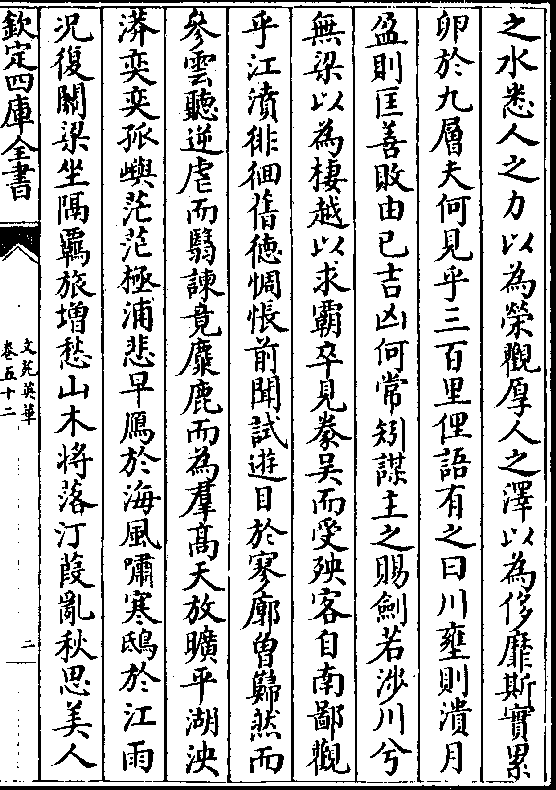 之水悉人之力以為榮觀厚人之澤以為侈靡斯實累
卵於九層夫何見乎三百里俚語有之曰川壅則潰月
盈則匡善敗由已吉凶何常矧謀主之賜劍若涉川兮
無梁以為棲越以求霸卒見豢吳而受殃客自南鄙觀
乎江濆徘徊舊徳惆悵前聞試遊目於寥廓曽巋然而
參雲聽逆虐而翳諫竟麋鹿而為羣髙天放曠平湖泱
漭奕奕孤嶼茫茫極浦悲早鴈於海風嘯寒鴟於江雨
况復關梁坐隔羈旅増愁山木將落汀葭亂秋思美人
欽定四庫全書
文苑英華
卷五十二
二